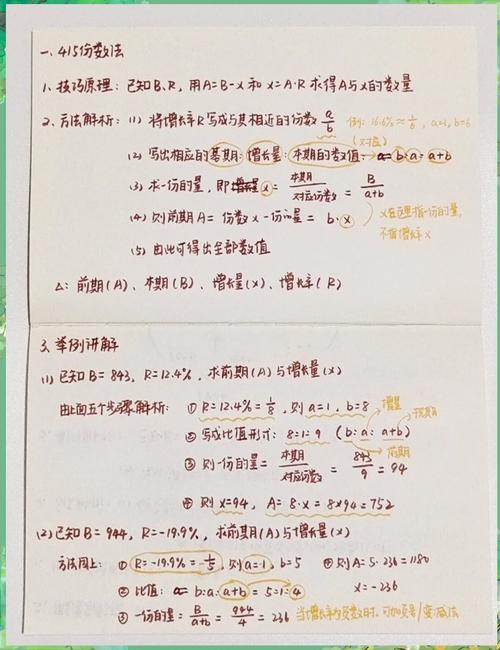 一. 415份数法
1. 技巧原理: 已知B、R, 用A=B-x 和 x=A·R 求得A与x的数量
2. 方法解析: (1) 将增长率R写成与其相近的份数 a/b 例: 16.6%≈1/6, a=1, b=6
(对应)
(2) 写出相应的基期:增长量:本期的数值→ a= b:a:a+b
(3) 求一份的量, 即增量x = 本期/对应份数 = B/a+b
(4) 则前期A= 份数x一份的量 = b·x
x在这里指一份的量,
不指增长x
(5) 由此可得出全部数值
△: 前期(A)、本期(B)、增长量(x)、增长率(R)
3. 举例讲解
(1) 已知B=843, R=12.4%, 求前期(A)与增长量(x)
由上面五个步骤解析: ① R=12.4%=1/8, 则a=1, b=8
增量
② 写成比值形式: 8:1:9 (b:a:a+b)
前期
③ 则一份的量= 本期/对应份数 = 843/9 = 94
④ 则x=94, A=8·x=8×94=752
(2) 已知B=944, R=-19.9%, 求前期(A)与增长量(x)
方法同上: ① R=-19.9%=-1/5, 则a=1, b=5 ④ 则A=5·236=1180
② 比值: a= b:a:a+b=5:1:4 x=-236
③ 一份的量= B/a+b = 944/4 = 236 当增长率为负数时,